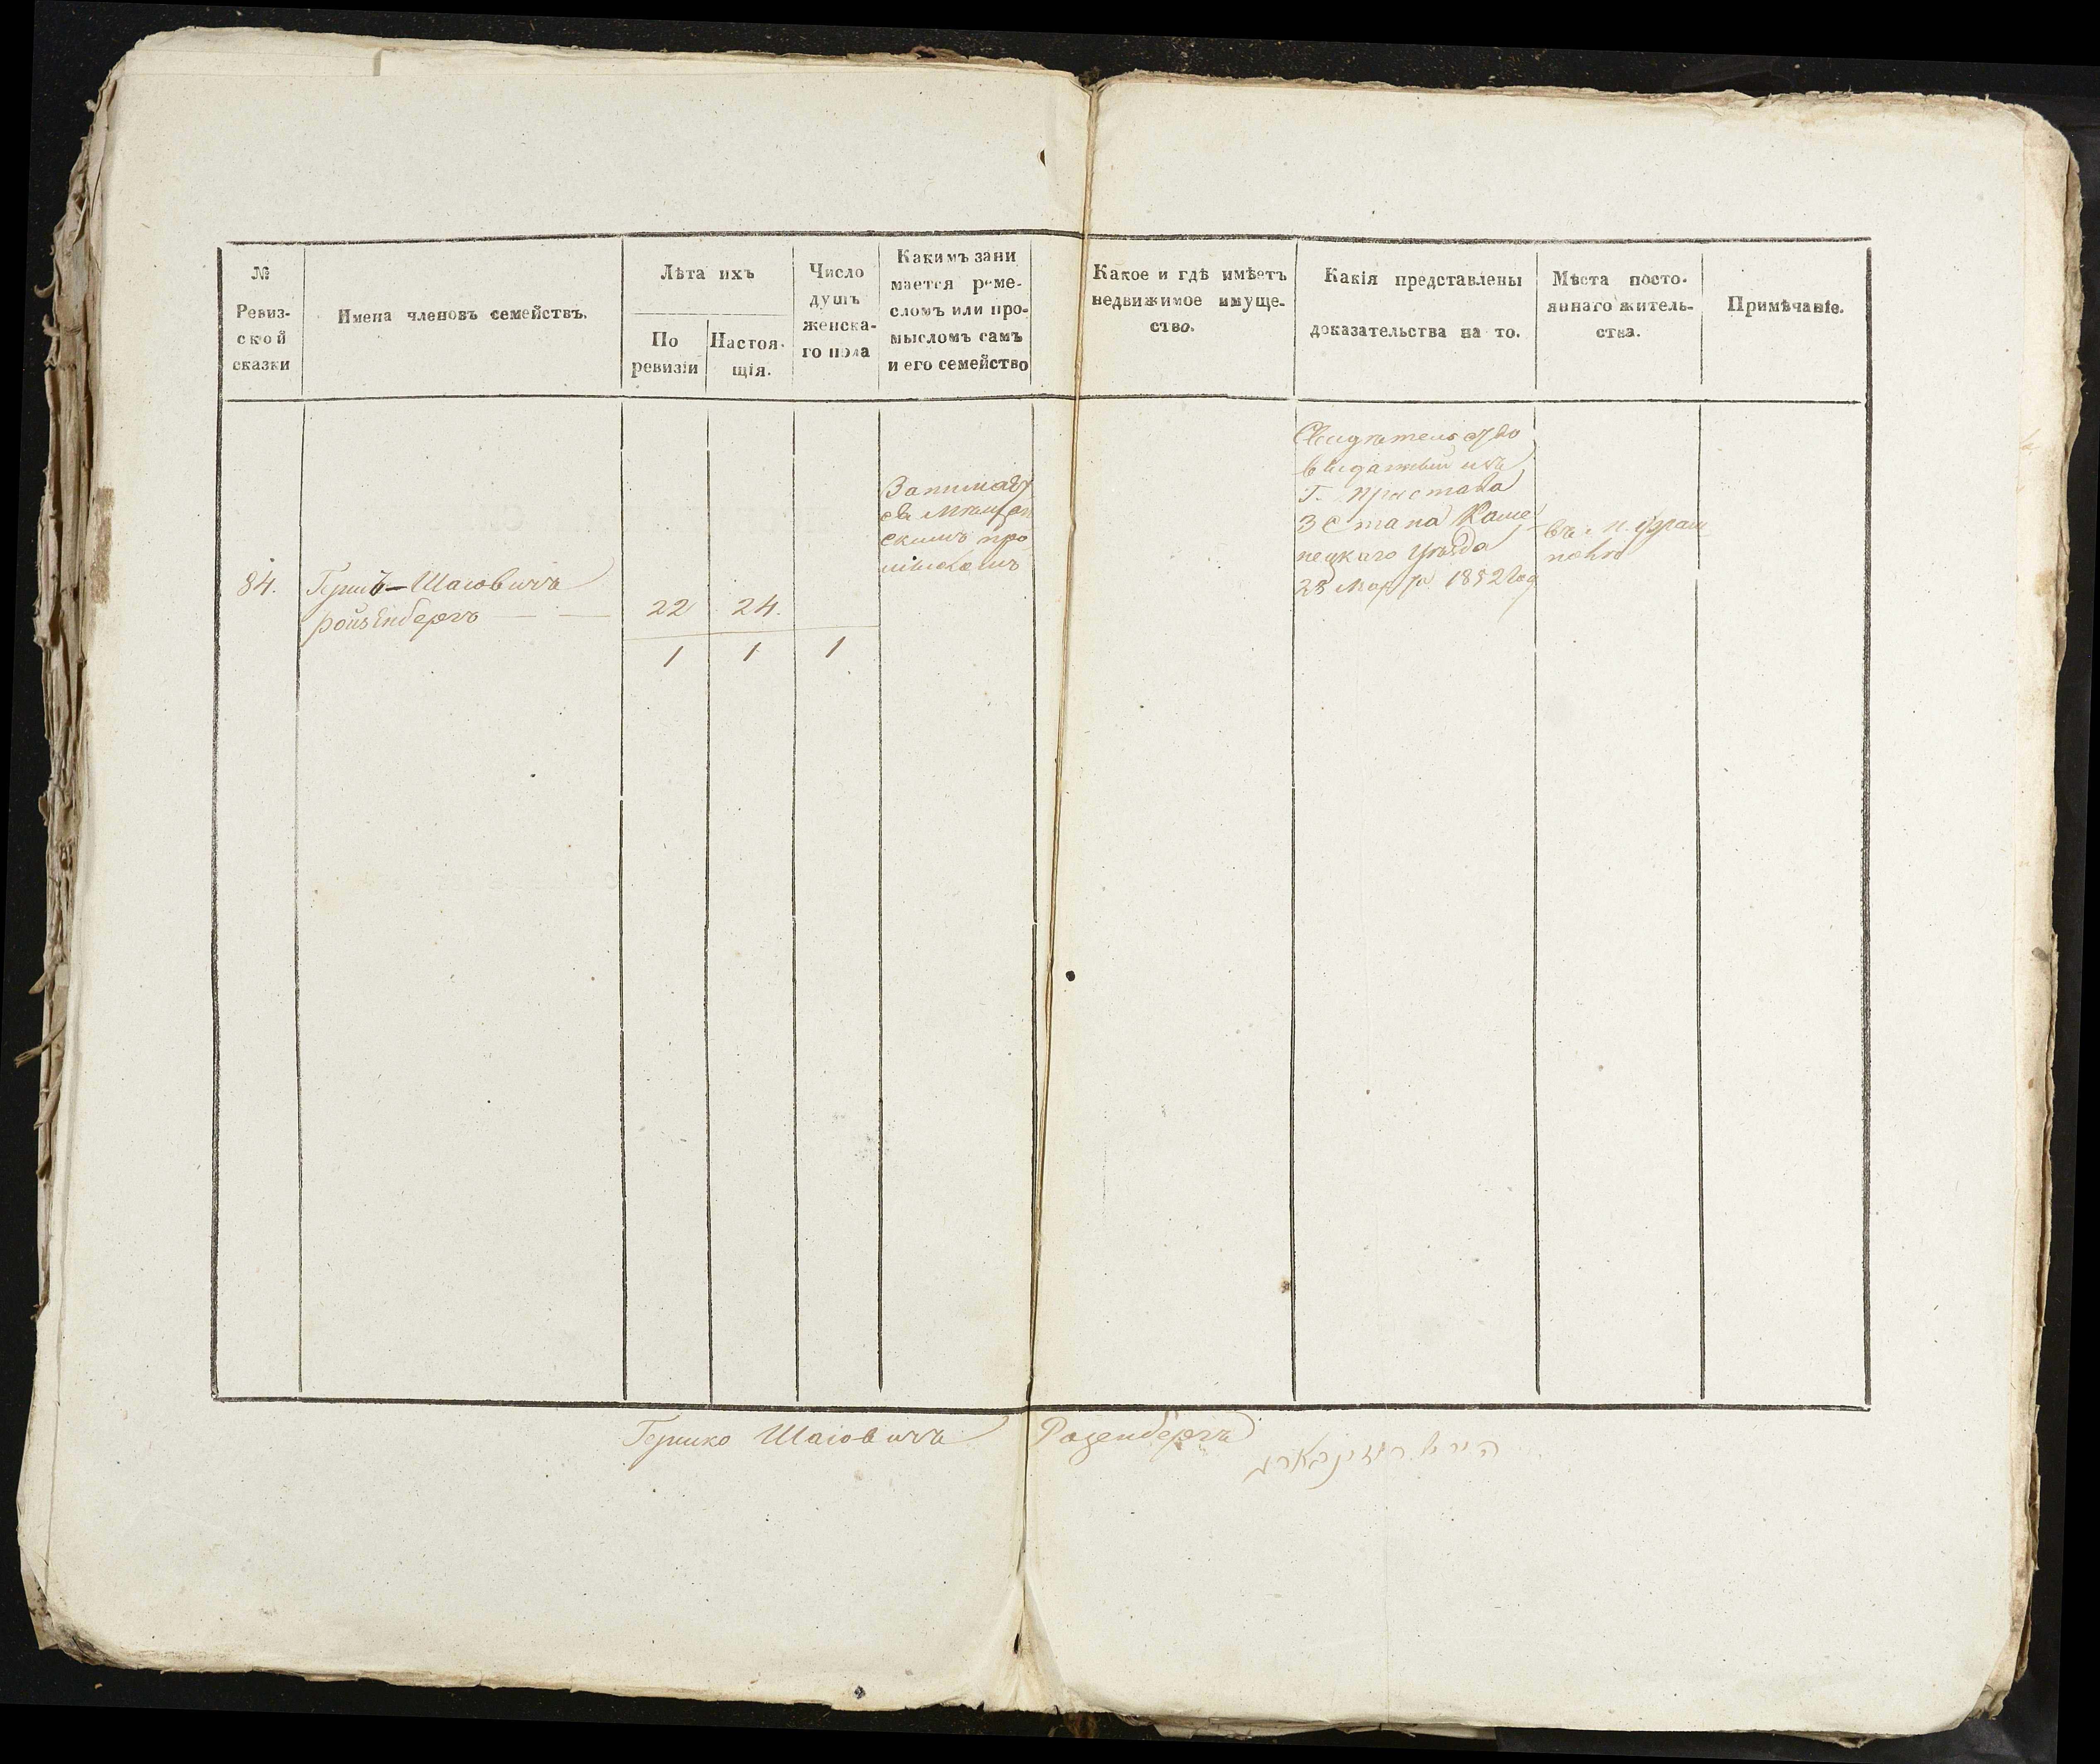 №
Ревиз-
ской
сказки
Имена членовъ семействъ.
Лѣта ихъ
По
ревизіи
Настоя-
щія.
Число
душъ
женска-
го пола
Какимъ зани
мается реме-
сломъ или про-
мысломъ самъ
и его семейство
Какое и гдѣ имѣетъ
недвижимое имуще-
ство.
Какія представлены
доказательства на то.
Мѣста посто-
яннаго житель-
ства.
Примѣчаніе.
84.
Шаіовичъ
22
24.
1 1 1
Занимает
ся мѣщан
скимъ про
мысломъ
Свидѣтельство
г. пристава
3 Стана Каме
нецкаго уѣзда
1852 год
въ м. Фрам
полѣ
Гершко Шаіовичъ Розенбергъ